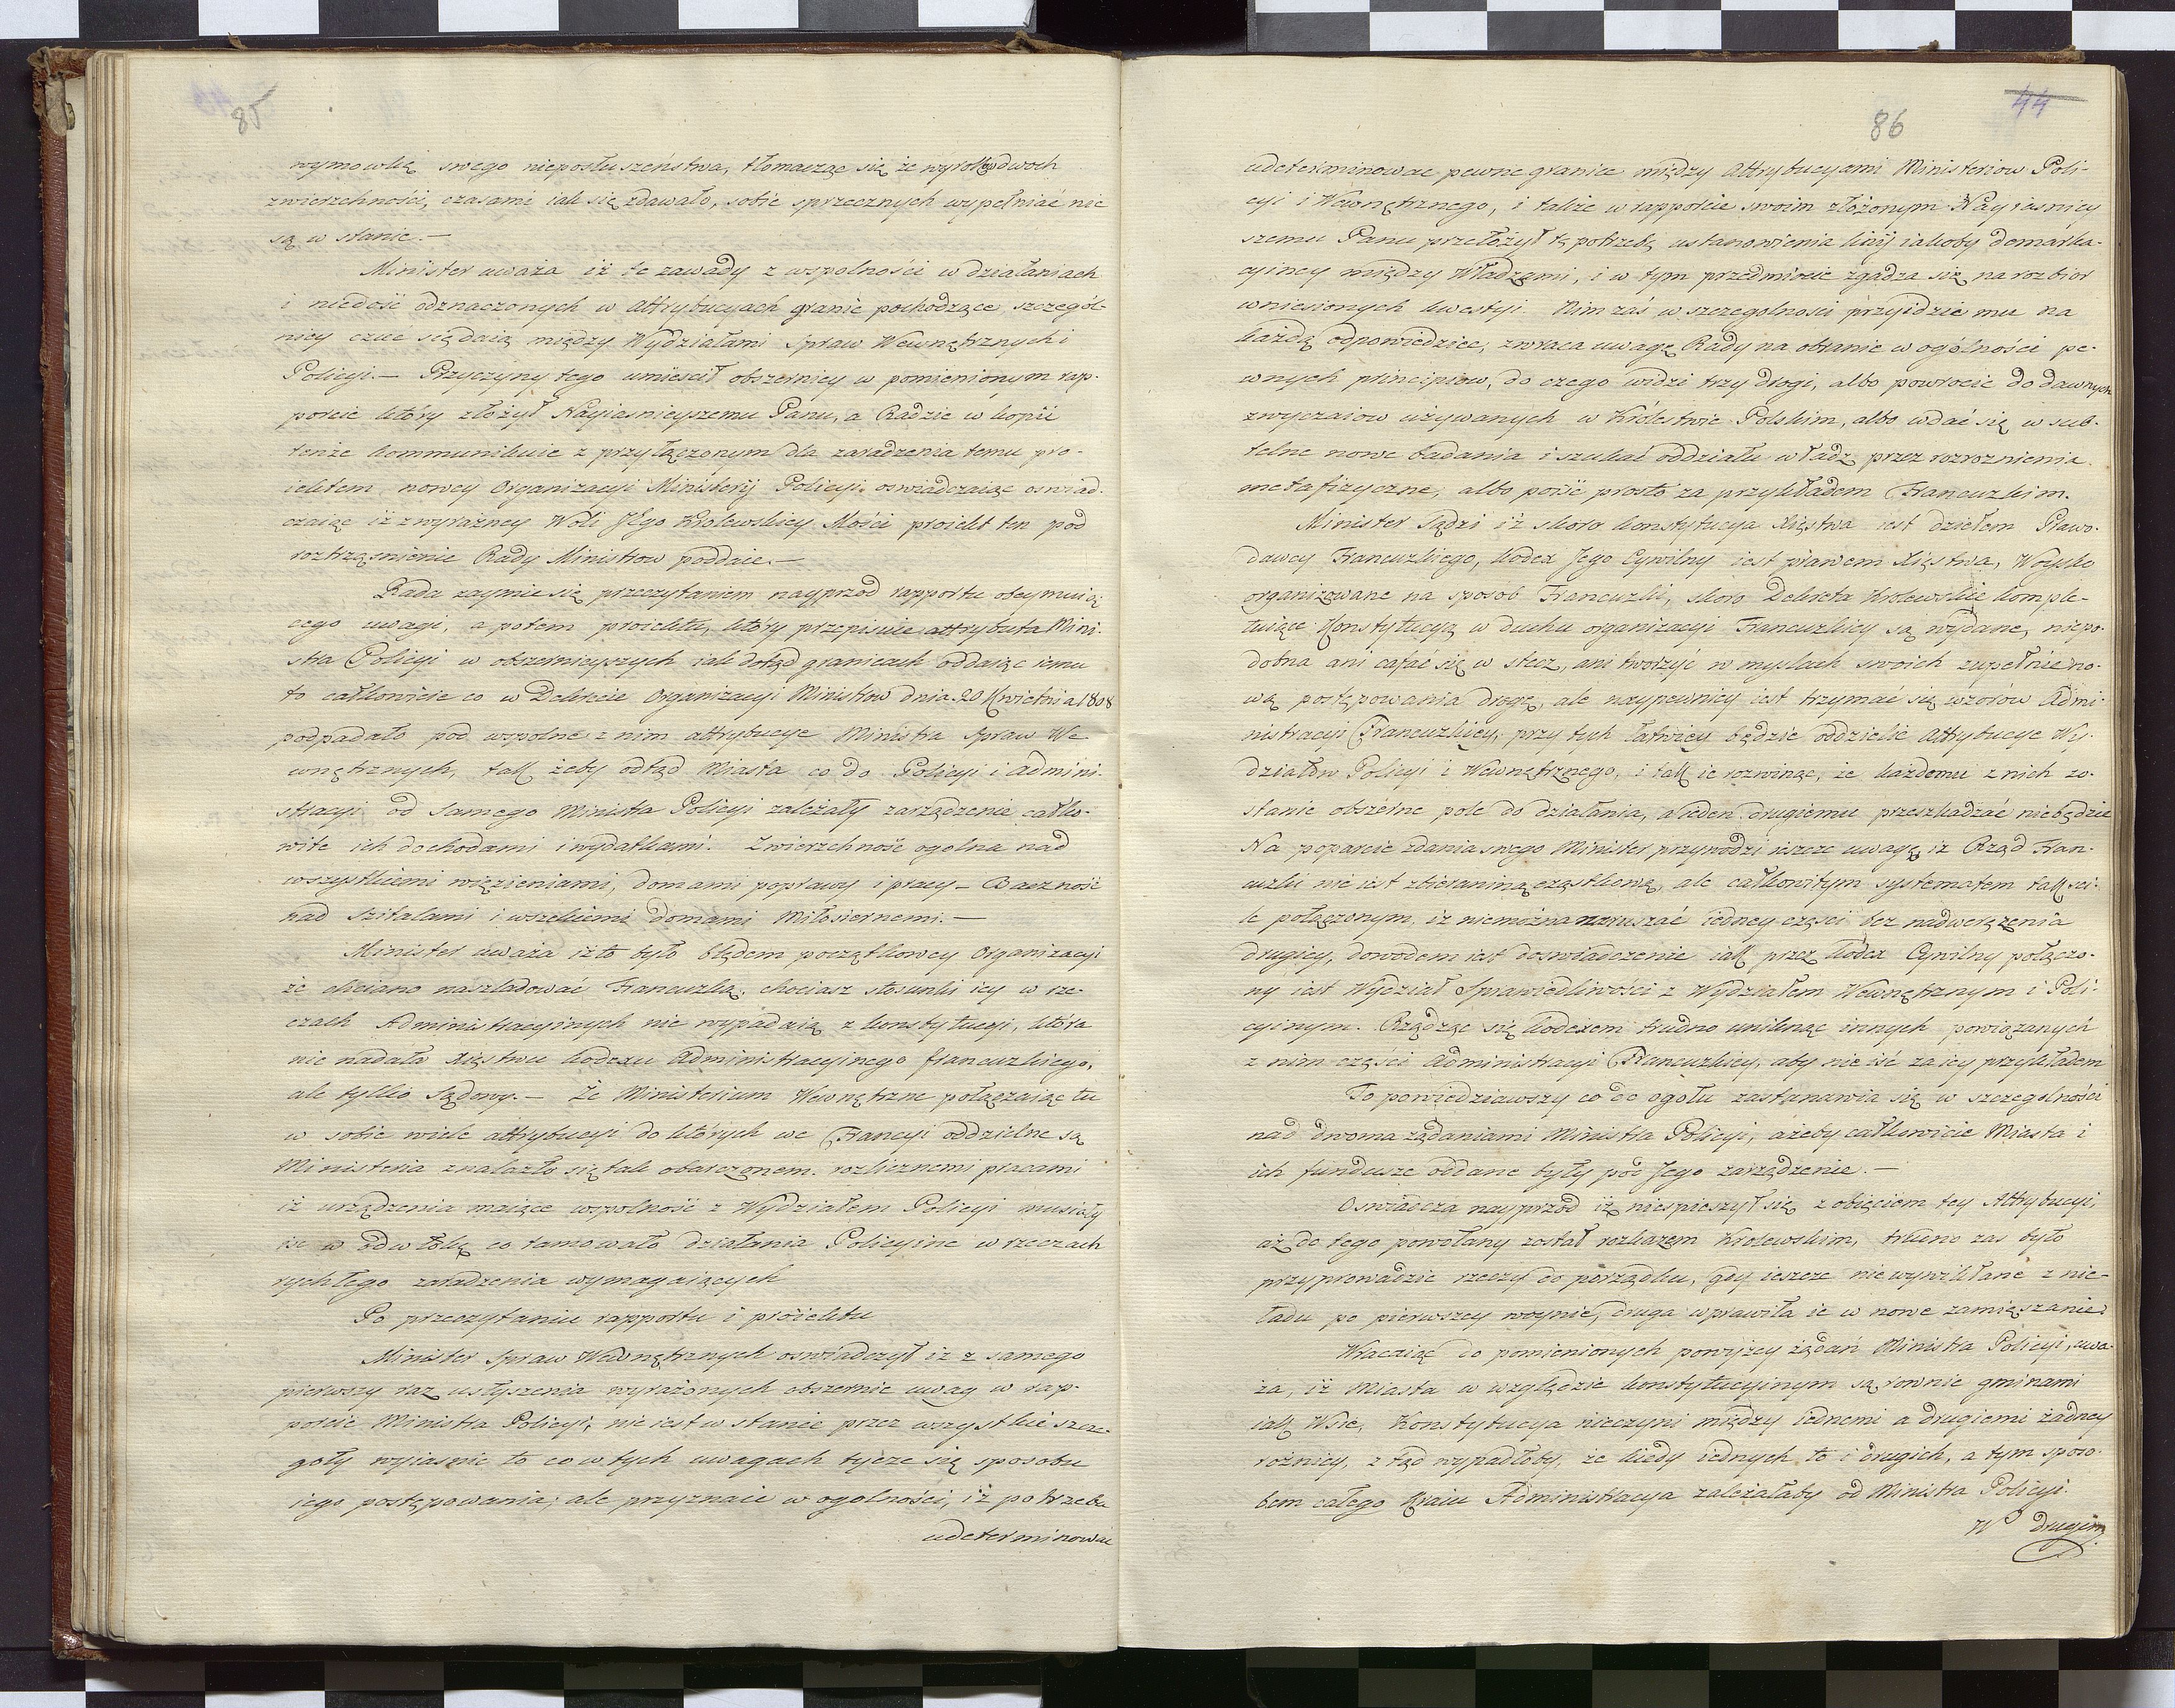 85
wymowką swego nieposłuszeństwa, tłomacząc się że wyrokow dwoch
zwierzchności, czasami iak się zdawało, sobie sprzecznych wypełniać nie
są w stanie. —
Minister uważa iż te zawady z wspolności w działaniach
i niedość odznaczonych w attrybucyach granic pochodzące, szczegól-
niey czuć się daią między Wydziałami Spraw Wewnętrznych i
Policyi. — Przyczyny tego umieścił obszerniey w pomienionym rap-
porcie który złożył Nayiasnieyszemu Panu, a Radzie w kopii
tenże kommunikuie z przyłączonym dla zaradzenia temu pro-
iektem nowey Organizacyi Ministerij Policyi. oswiadczaiąc oswiad-
czaiąc iż z wyrażney Woli JEgo Krolewskiey Mości proiekt ten pod
roztrząsnienie Rady Ministrow poddaie. —
Rada zaymie się przeczytaniem nayprzod rapportu obeymuią-
cego uwagi, a potem proiektu, który przepisuie attrybuta Mini-
stra Policyi w obszernieyszych iak dotąd granicach oddaiąc iemu
to całkowicie co w Dekrecie Organizacyi Ministrow dnia 20 Kwietnia 1808
podpadało pod wspolne z nim attrybucye Ministra Spraw We
wnętrznych, tak żeby odtąd Miasta co do Policyi i Admini-
stracyi od samego Ministra Policyi zależały zarządzenie całko-
wite ich dochodami i wydatkami. Zwierzchność ogolna nad
wszystkiemi więzieniami, domami poprawy i pracy — Baczność
nad szpitalami i wszelkiemi Domami Miłosiernemi. —
Minister uważa iż to było błędem początkowey Organizacyi
że chciano naszladować Francuzką, chociasz stosunki iey w rze-
czach Administracyinych nie wypadaią z konstytucyi, która
nie nadała Xięstwu kodexu Administracyinego francuzkiego,
ale tylko Sądowy. — Że Ministerium Wewnętrzne połączaiąc tu
w sobie wiele attrybucyi do których we Francyi oddzielne są
Ministeria znalazło się tak obarczonem rozlicznemi pracami
iż urządzenia maiące wspolność z Wydziałem Policyi musiały
iść w odwłokę co tamowało działania Policyine w rzeczach
rychłego zaradzenia wymagaiących
Po przeczytaniu rapportu i proiektu
Minister Spraw Wewnętrznych oswiadczył iż z samego
pierwszy raz usłyszenia wyrażonych obszernie uwag w rap-
porcie Ministra Policyi, nie iest w stanie przez wszystkie szcze-
goły wyiasnić to co w tych uwagach tycze się sposobu
iego postępowania; ale przyznaie w ogolności, iż potrzeba
udeterminować
44
86
udeterminować pewne granice między Attrybucyami Ministeriow Poli-
cyi i Wewnętrznego, i także w rapporcie swoim złożonym Nayiasniey
szemu Panu przełożył tę potrzebę ustanowienia linij iakoby demarka-
cyiney między Władzami, i w tym przedmiocie zgadza się na rozbior
wniesionych kwestyi. Nim zaś w szczegolności przyidzie mu na
każdą odpowiedzieć, zwraca uwagę Rady na obranie w ogólności pe-
wnych principiow, do czego widzi trzy drogi, albo powrocić do dawnych
zwyczaiow używanych w Królestwie Polskim, albo wdać się w sub-
telne nowe badania i szukać oddziału władz przez rozroznienia
metafizyczne, albo poiść prosto za przykładem Francuzkim.
Minister Sądzi iż skoro konstytucya Xięstwa iest dziełem Prawo-
dawcy Francuzkiego, kodex Jego Cywilny iest prawem Xięstwa, Woysko
organizowane na sposob Francuzki, skoro Dekreta Krolewskie komple-
tuiące Konstytucyą w duchu organizacyi Francuzkiey są wydane, niepo-
dobna ani cofać się w stecz, ani tworzyć w myslach swoich zupełnie no-
wą postępowania drogę, ale naypewniey iest trzymać się wzorów Admi-
nistracyi Francuzkiey; przy tych łatwiey będzie oddzielić Attrybucye Wy-
działow Policyi i Wewnętrznego, i tak ie rozwinąć, że każdemu z nich zo-
stanie obszerne pole do działania, a ieden drugiemu przeszkadzać nie będzie
Na poparcie zdania swego Minister przywodzi ieszcze uwagę iż Rząd Fran-
cuzki nie iest zbieraniną cząstkową, ale całkowitym systematem tak sci-
le połączonym, iż niemożna naruszać iedney części bez nadwerężenia
drugiey, dowodem iest doswiadczenie iak przez kodex Cywilny połączo-
ny iest Wydział Sprawiedliwości z Wydziałem Wewnętrznym i Poli-
cyinym. Rządząc się kodexem trudno uniknąć innych powiązanych
z nim części Administracyi Francuzkiey, aby nie iść za iey przykładem
To powiedziawszy co do ogołu zastanawia się w szczegolności
nad dwoma żądaniami Ministra Policyi, ażeby całkowicie Miasta i
ich fundusze oddane były pod Jego zarządzenie. —
Oswiadcza nayprzod iż niespieszył się z obięciem tey Attrybucyi,
aż do tego powołany został rozkazem Krolewskim, trudno zas było
przyprowadzić rzeczy do porządku, gdy ieszcze niewywikłane z nie-
ładu po pierwszey woynie, druga wprawiła ie w nowe zamięszanie.
Wracaiąc do pomienionych powyżey żądań Ministra Policyi, uwa-
ża, iż Miasta w względzie konstytucyinym są rownie gminami
iak Wsie, Konstytucya nieczyni między iednemi a drugiemi żadney
rożnicy, z tąd wypadłoby, że kiedy iednych to i drugich, a tym sposo-
bem całego Kraiu Administracya zależałaby od Ministra Policyi.
W drugim